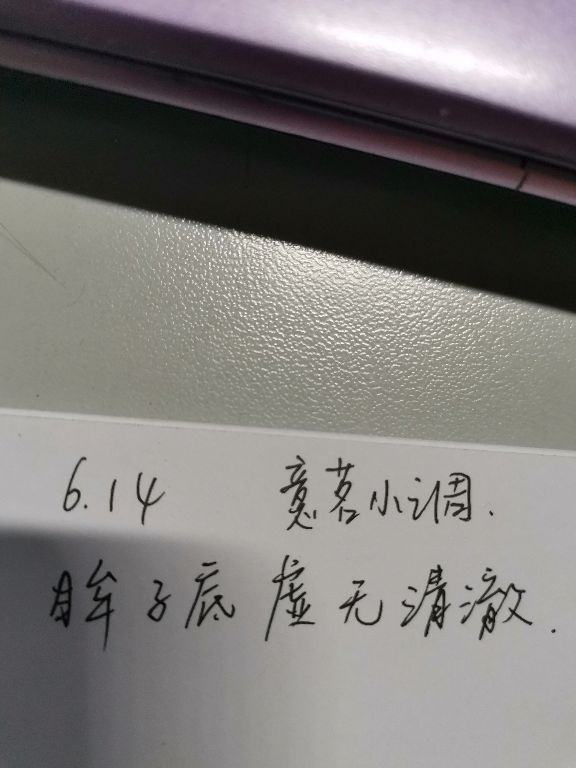 6.14 意茗小调.
眸子底虚无清澈.